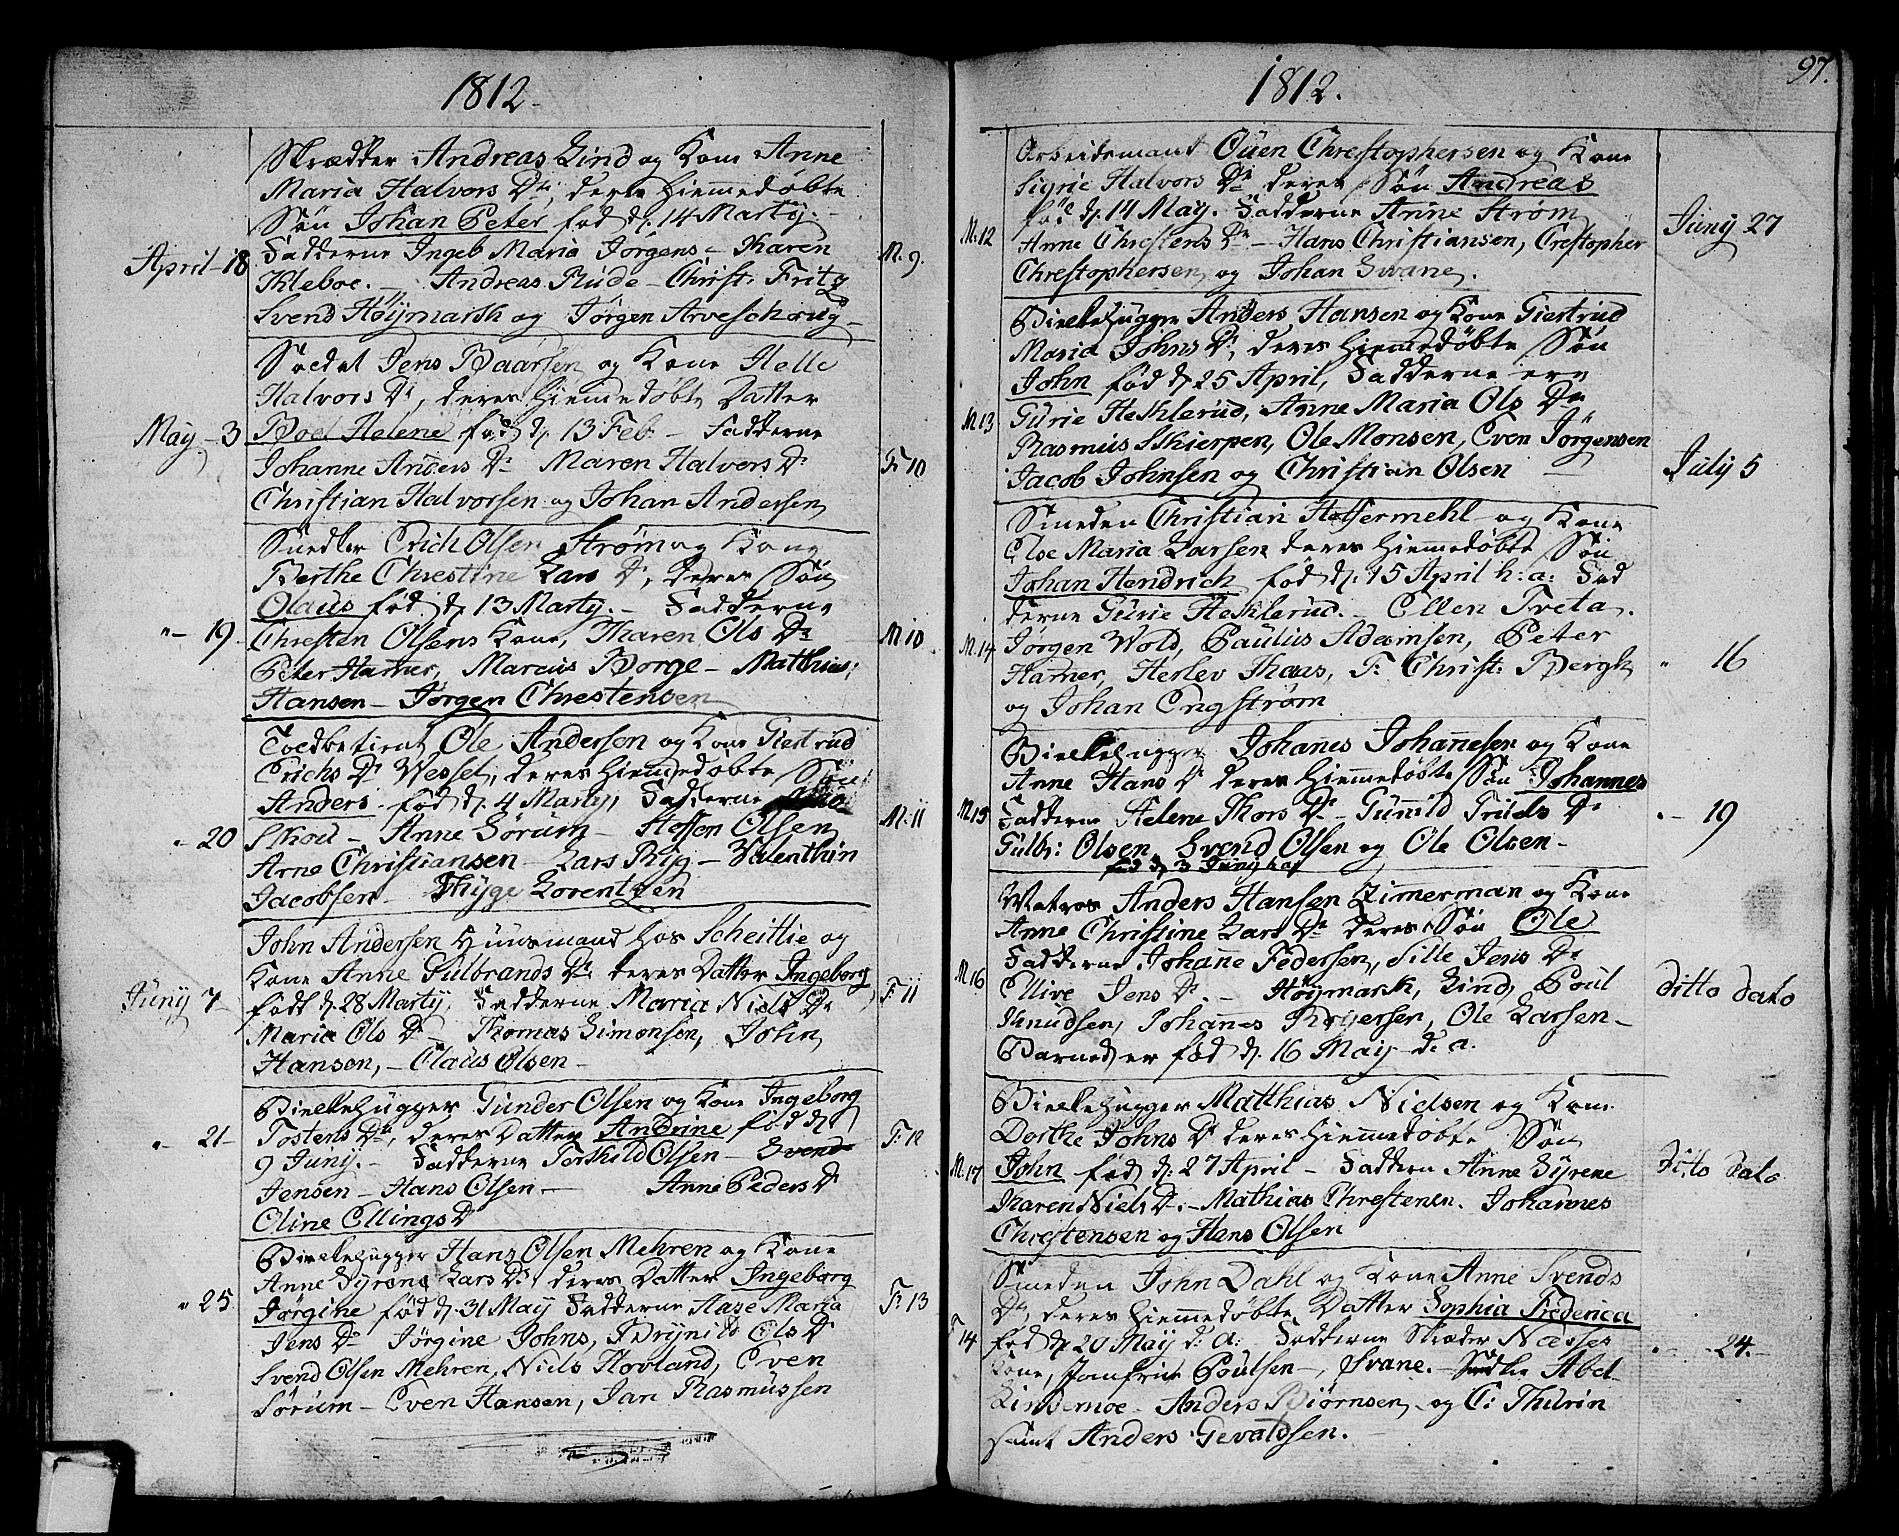 1812.
Skrædder Andreas Lind og Kone Anne
Maria Halvors Dr, deres hiemmedøbte
Søn Johan Peter fød d. 14 Marty. -
April - 18
Fadderne Ingeb Maria Jørgens - Karen
M. 9.
Kleboe. - Andreas Rude - Christ: Fritz
Svend Höijmark og Jørgen Arveschoug -
Soldat Jens Baarsen og Kone Helle
Halvors Dr, deres hiemmedøbte Datter
May - 3
Boel Helene fød d. 13 Feb. - Fadderne
Johanne Anders Dr Maren Halvors Dr
F: 10
Christian Halvorsen og Johan Andersen
Snedker Erich Olsen Strøm og Kone
Berthe Chrestine Lars Dr, deres Søn
Olaus fød d. 13 Marty. - Fadderne
" - 19
Chresten Olsens Kone, Karen Ols Dr
M: 10
Peter Hamer, Marcus Borge - Matthias
Hansen - Jørgen Chrestensen
Ole Andersen og Kone Giertrud
Erichs Dr Wessel, deres hiemmedøbte Søn
Anders fød d. 4 Marty, Fadderne
" 20
Skou - Anne Sørum - Steffen Olsen
M: 11
Arne Christiansen - Lars Ryg - Valenthin
Jacobsen - Thyge Lorentzen
John Andersen Huusmand hos Scheittlie og
Kone Anne Gulbrands Dr deres Datter Ingeborg
Juny 7
født d. 28 Marty, Fadderne Maria Niels Dr
F: 11
Maria Ols Dr - Thomas Simonsen, John
Hansen, - Claus Olsen -
Bielkehugger Gunder Olsen og Kone Ingeborg
" - 21 -
Tostens Dr, deres Datter Andrine fød d.
F: 12
9 Juny. - Fadderne Torkild Olsen - Svend
Jensen - Hans Olsen - Anne Peders Dr
Oline Ellings Dr
Bielkehugger Hans Olsen Mehren og Kone
Anne Syrene Lars Dr deres Datter Ingeborg
" 25
Jørgine fød d. 31 May Fadderne Aase Maria
F: 13
Jens Dr Jørgine Johns, Brynild Ols Dr
Svend Olsen Mehren, Niels Hovland, Even
Sørum - Even Hansen, Jan Rasmussen
97.
1812.
Arbeidsmand Ouen Chrestophersen og Kone
Sigrie Halvors Dr deres Søn Andreas
fød d. 14 May. Fadderne Anne Strøm
M: 12
Juny 27
Anne Chrestens Dr - Hans Christiansen, Crestopher
Chrestophersen og Johan Svane.
Bielkehugger Anders Hansen og Kone Giertrud
Maria Johns Dr, deres hiemmedøbte Søn
John fød d. 25 April, Fadderne ere
M 13
Gurie Heklerud, Anne Maria Ols Dr
Rasmus Skierpen, Ole Monsen, Even Jørgensen
July 5
Jacob Johnsen og Christian Olsen
Smeden Christian Hessermehl og Kone
Else Maria Larsen deres hiemmedøbte Søn
Johan Hendrich fød d. 15 April h: a: Fad
derne Gurie Heklerud. - Ellen Tveta.
M. 14
Jørgen Wold, Paulus Adamsen, Peter
" 16
Hamer, Herlev Thaas, F: Christ: Bergh
og Johan Engstrøm
Bielkehugger Johanes Johanesen og Kone
Anne Hans Dr deres hiemmedøbte Søn Johannes
M. 15
Fadderne Helene Thors Dr - Gunild Friids Dr
" - 19
Gulbr: Olsen, Svend Olsen og Ole Olsen -
fød d. 3 Juny h: a:
Matros Anders Hansen Zimerman og Kone
Anne Christine Lars Dr deres Søn Ole
Fadderne Johane Federsen, Sille Jens Dr
M. 16
Ellive Jens Dr. - Høymark, Lind, Poul
Ditto Dato
Knudsen, Johanes Reyersen, Ole Larsen -
Barnet er fød d. 16 May d. a.
Bielkehugger Matthias Nielsen og Kone
Dorthe Johns Dr deres hiemmedøbte Søn
M. 17
John fød d. 27 April - Faddere Anne Syrene
Ditto Dato
Karen Niels Dr. - Mathias Chrestenen. Johannes
Chrestensen og Hans Olsen
Smeden John Dahl og Kone Anne Svends
Dr, deres hiemmedøbte Datter Sophia Frederica
F 14
fød d. 20 May d: a: Fadderne Skræder Næsses
" - 24. -
Kone, Jomfrue Poulsen -, Svane. - Abel
Lindemoe - Anders Biørnsen og C: Thurin
samt Anders Gevaldsen.